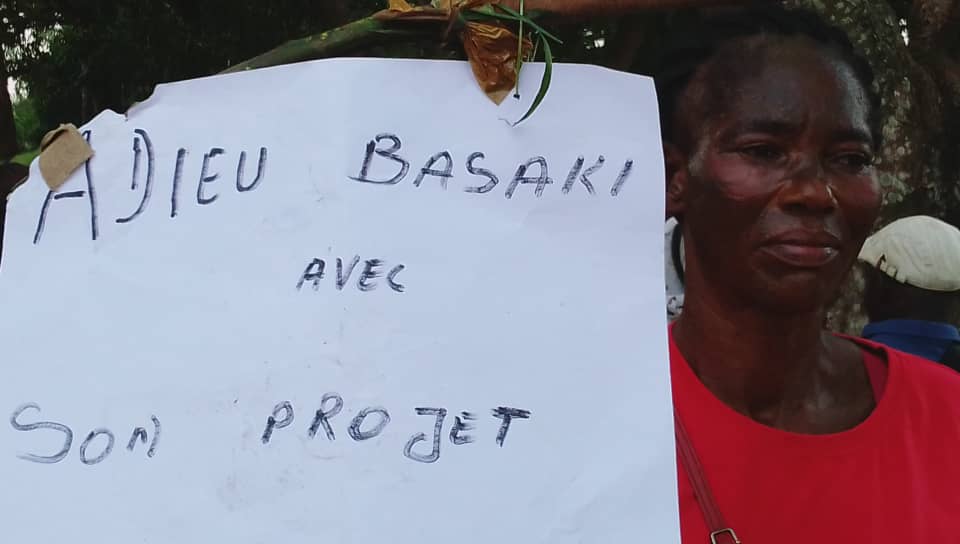 ADIEU BASAKI
AVEC
SON PROJET